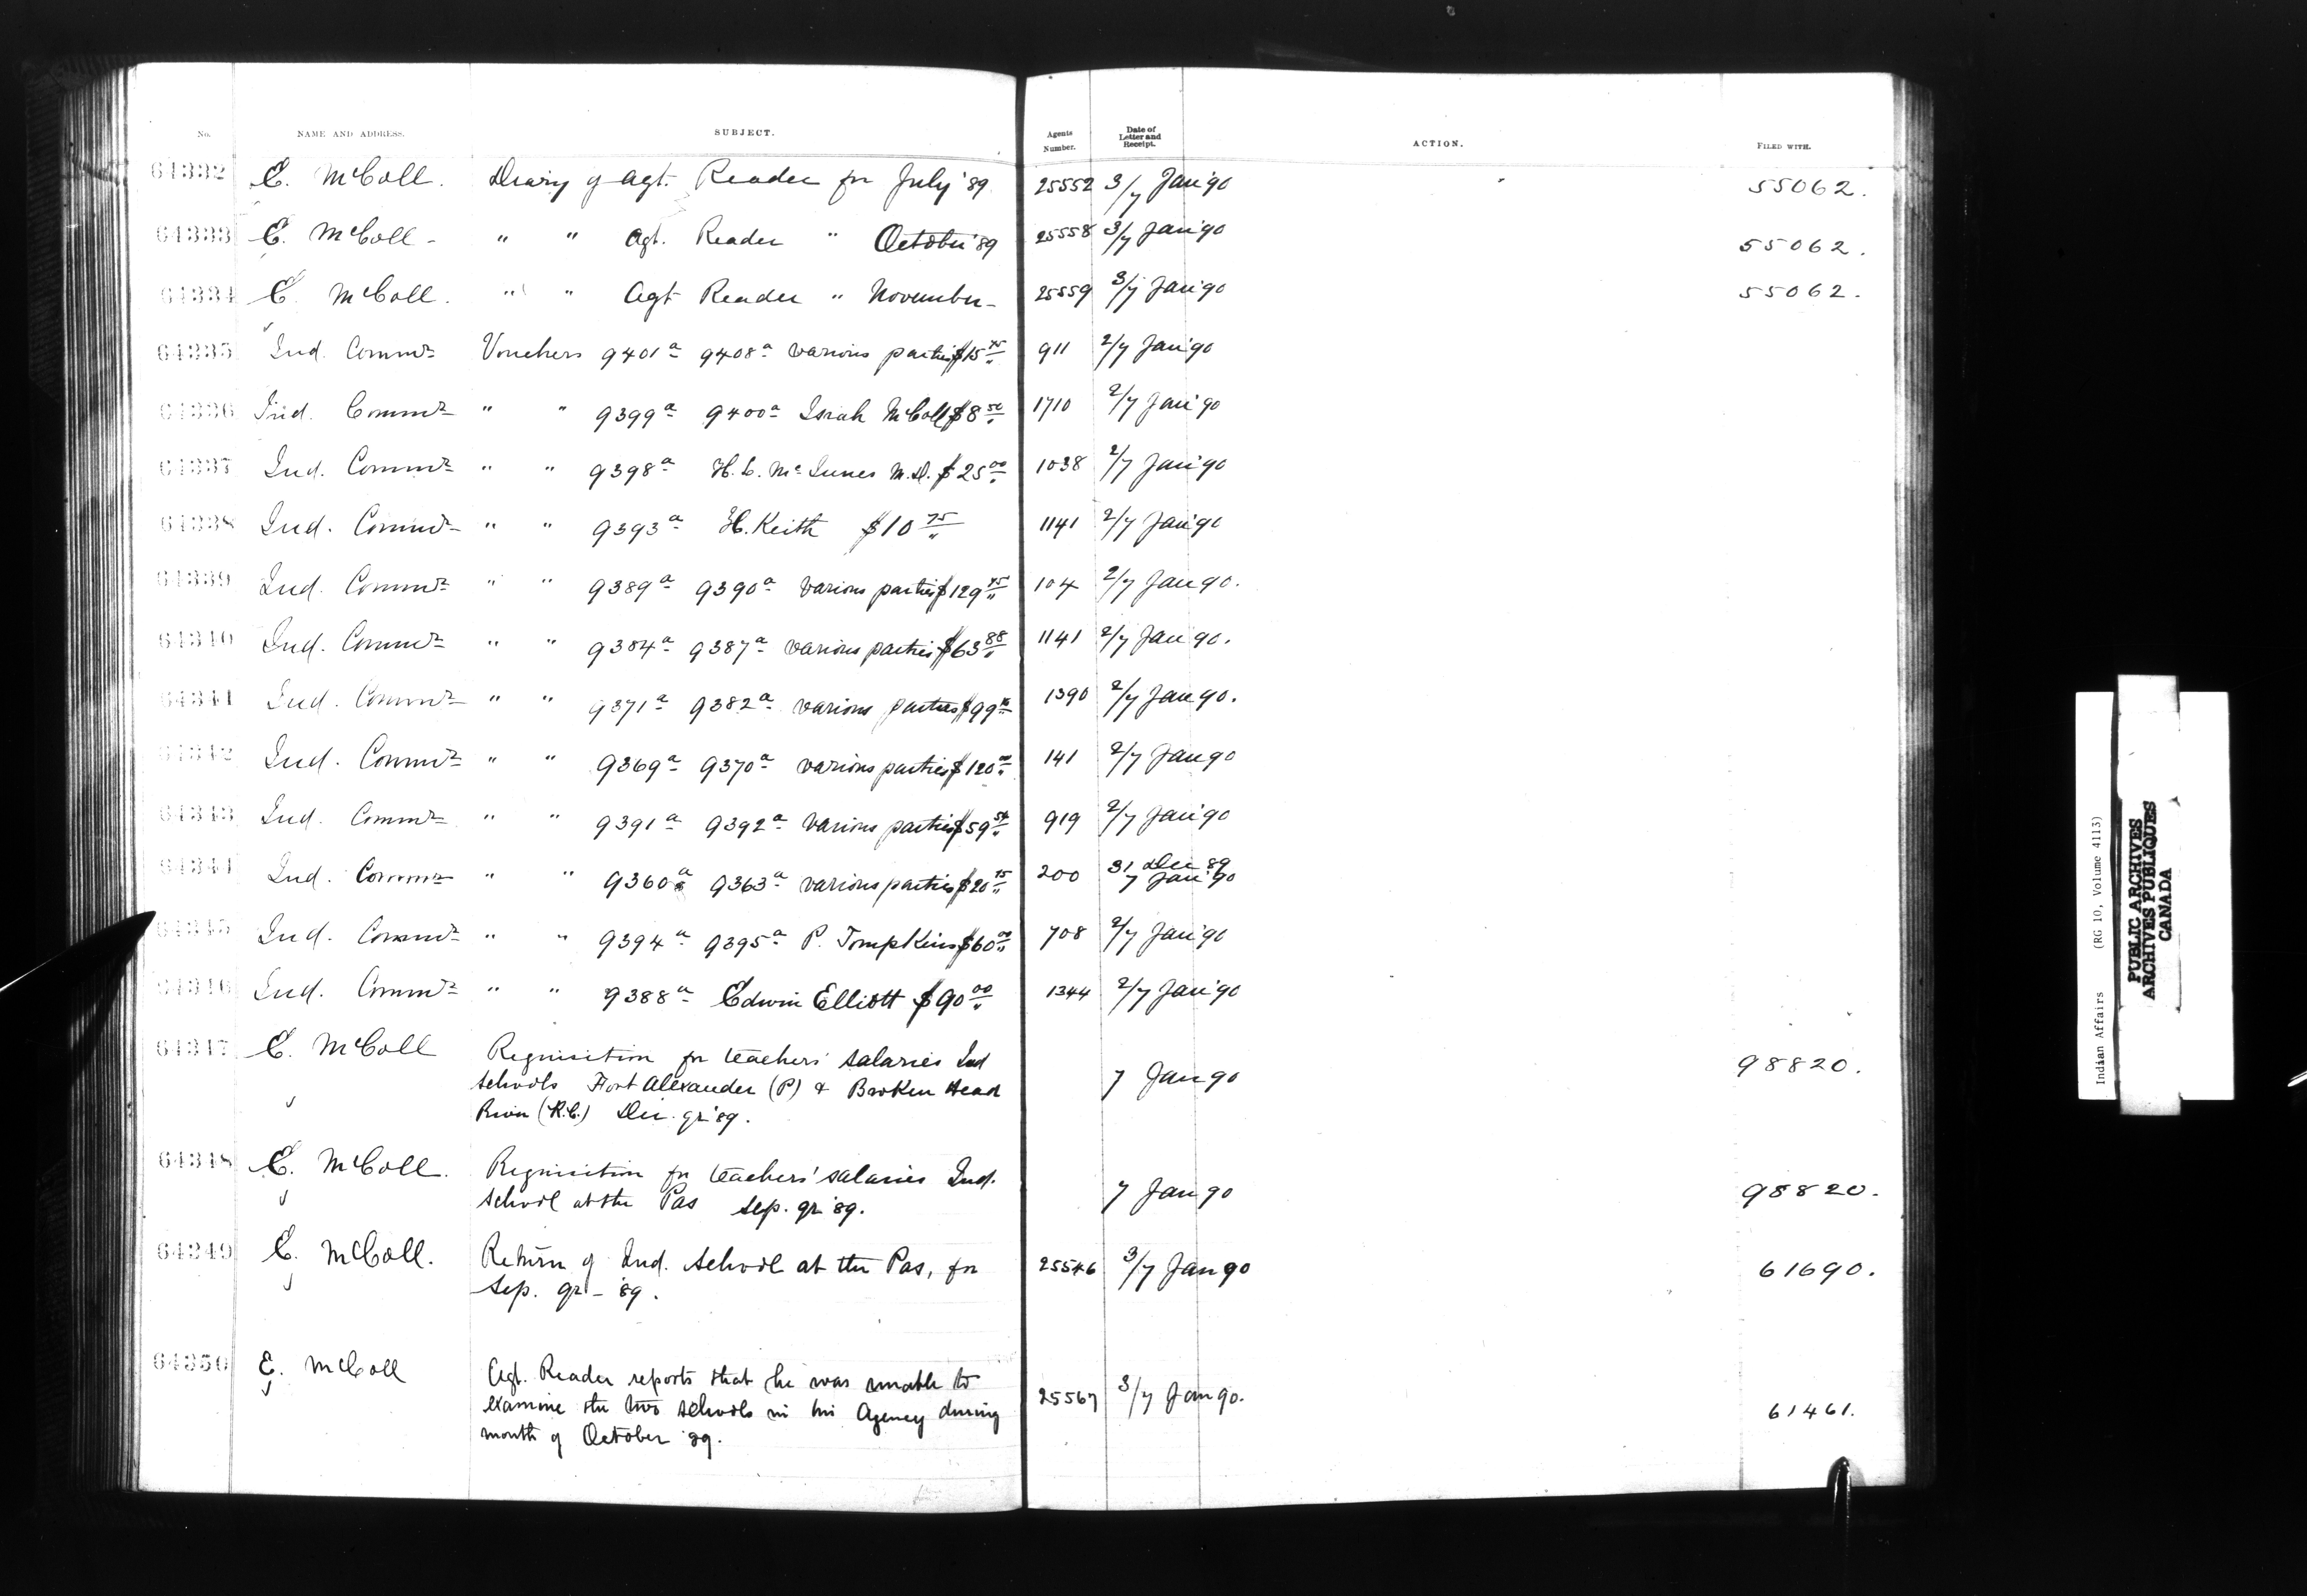 No. NAME AND ADDRESS. SUBJECT. Agents Number. Date of Letter and Receipt. ACTION. FILED WITH.
64332 E. McColl. Diary of Agt. Reader for July '89 25552 3/7 Jan '90 55062.
64333 E. McColl - " " Agt. Reader " October '89 25558 3/7 Jan '90 55062.
64334 E. McColl. " " Agt Reader " November - 25559 3/7 Jan '90 55062.
64335 Ind. Commr Vouchers 9401a 9408a various parties $15 911 2/7 Jan '90
64336 Ind. Commr " " 9399a 9400a Isiah McColl $8 50 1710 2/7 Jan '90
64337 Ind. Commr " " 9398a H.C. McInnes M.D. $25 00 1038 2/7 Jan '90
64338 Ind. Commr " " 9393a H. Keith $10 75 1141 2/7 Jan '90
64339 Ind. Commr " " 9389a 9390a various parties $129 104 2/7 Jan 90.
64340 Ind. Commr " " 9384a 9387a various parties $63 88 1141 2/7 Jan '90.
64341 Ind. Commr " " 9371a 9382a various parties $99 1390 2/7 Jan 90.
64342 Ind. Commr " " 9369a 9370a various parties $120 00 141 2/7 Jan 90
64343 Ind. Commr " " 9391a 9392a various parties $59 919 2/7 Jan '90
64344 Ind. Commr " " 9360a 9363a various parties $20 75 200 31 Dec 89 7 Jan '90
64345 Ind. Commr " " 9394a 9395a P. Tompkins $60 00 708 2/7 Jan '90
64346 Ind. Commr " " 9388a Edwin Elliott $90 00 1344 2/7 Jan '90
64347 E. McColl Requisition for teachers' salaries Ind
schools Fort Alexander (P) & Broken Head 7 Jan 90 98820.
River (R.C.) Dec. qr '89.
64348 E. McColl. Requisition for teachers' salaries Ind.
school at the Pas Sep. qr '89. 7 Jan 90 98820.
64349 E. McColl. Return of Ind. school at the Pas, for 25546 3/7 Jan 90 61690.
Sep. qr - '89.
64350 E. McColl Agt. Reader reports that he was unable to
examine the two schools in his Agency during 25567 3/7 Jan 90. 61461.
month of October '89.
Indian Affairs (RG 10, Volume 4113)
PUBLIC ARCHIVES
ARCHIVES PUBLIQUES
CANADA